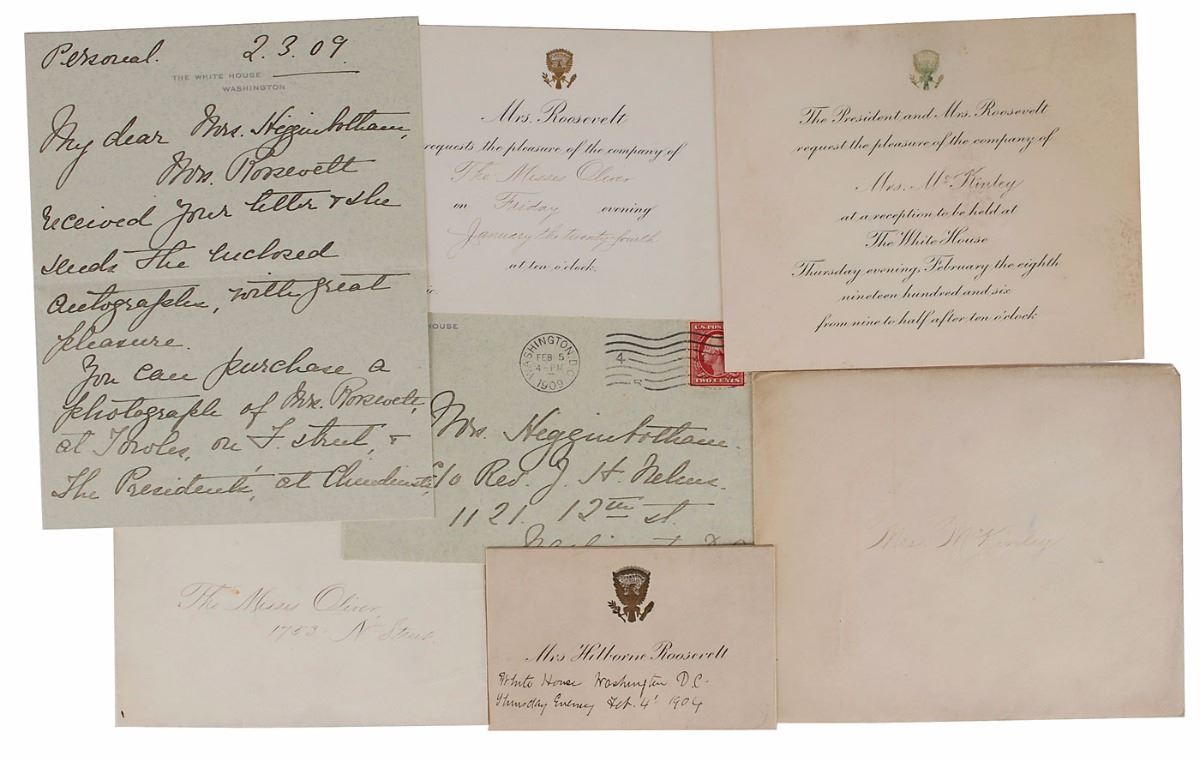 Personal. 2.3.09.
THE WHITE HOUSE
WASHINGTON
My dear Mrs. Higginbotham,
Mrs. Roosevelt
received your letter & she
sends the enclosed
autographs, with great
pleasure.
You can purchase a
photograph of Mrs. Roosevelt,
at Towles, on F. street, &
The Presidents', at
Mrs. Roosevelt
requests the pleasure of the company of
The Misses Oliver
on Friday evening
January the twenty-fourth
at ten o'clock.
The President and Mrs. Roosevelt
request the pleasure of the company of
Mrs. McKinley
at a reception to be held at
The White House
Thursday evening, February the eighth
nineteen hundred and six
from nine to half after ten o'clock
HOUSE
WASHINGTON, D.C.
FEB 5
4-PM
1909
4
U.S. POST
TWO CENTS
Mrs. Higginbotham.
c/o Rev. J. H. Nelms.
1121. 12th st.
The Misses Oliver,
1753 N Street.
Mrs. McKinley
Mrs Hilborne Roosevelt
White House Washington D.C.
Thursday Evening Feb. 4' 1904